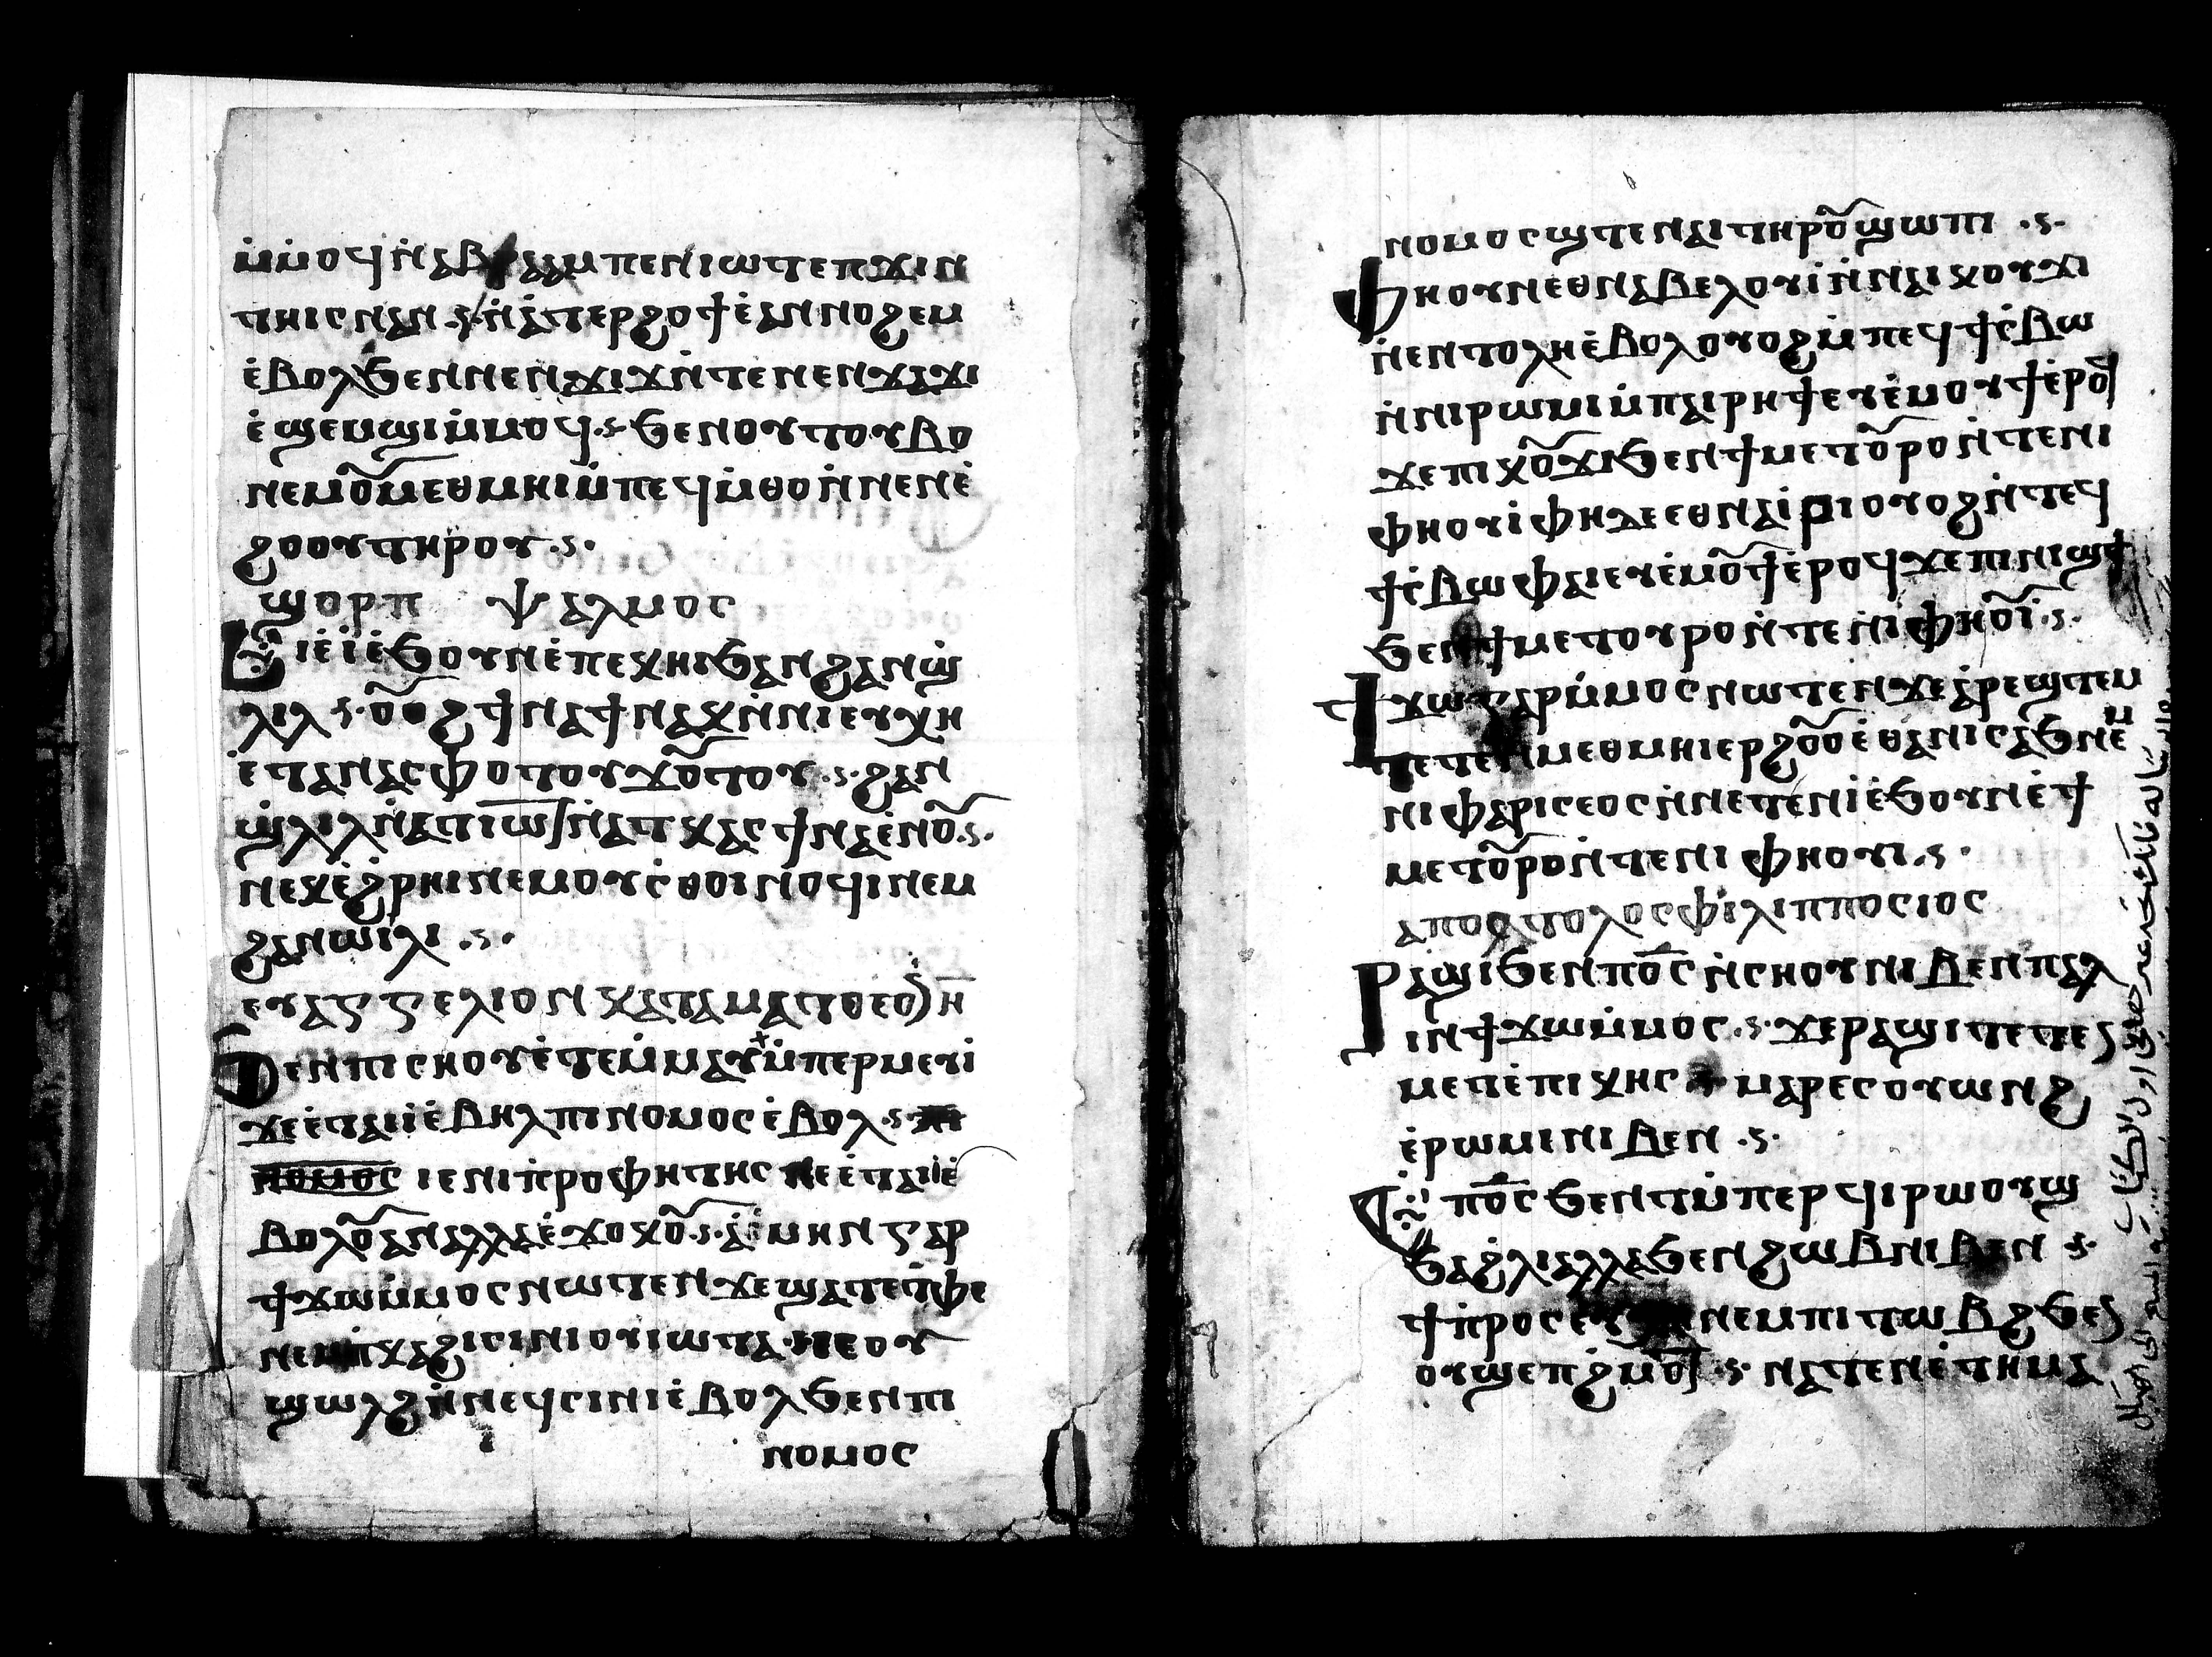 ⲙ̇ⲙⲟϥⲛ̇ⲁⲃⲣⲁⲁⲙ ⲡⲉⲛⲓⲱⲧ ⲉⲡϫⲓⲛ
ⲧⲏⲓⲥ ⲛⲁⲛ ⲛ̇ⲁⲧⲉⲣϩⲟϯ ⲉ̇ⲁⲛⲛⲟϩⲉⲙ
ⲉ̇ⲃⲟⲗϧⲉⲛⲛⲉⲛϫⲓϫⲛ̇ⲧⲉⲛⲉⲛϫⲁϫⲓ
ⲉ̇ϣⲉⲙϣⲓⲙ̇ⲙⲟϥ ϧⲉⲛⲟⲩⲧⲟⲩⲃⲟ
ⲛⲉⲙⲟ︦ⲙⲉⲑⲙⲏⲓ ⲙ̇ⲡⲉϥⲙ̇ⲑⲟ ⲛ̇ⲛⲉⲛⲉ̇
ϩⲟⲟⲩⲧⲏⲣⲟⲩ
ϣⲟⲣⲡ ⲯⲁⲗⲙⲟⲥ
ⲉⲓⲉ̇ⲓ̇ⲉ̇ϧⲟⲩⲛ ⲉ̇ⲡⲉⲕⲏⲓ ϧⲁⲛϩⲁⲛϣ̇
ⲗⲓⲗ ⲟ︦ⲟϩ ϯⲛⲁϯⲛⲁⲕⲛ̇ⲛⲓⲉⲩⲭⲏ
ⲉ̇ⲧⲁⲛⲁⲥⲫⲟⲧⲟⲩϫⲟ︦ⲧⲟⲩ ϩⲁⲛ
ϣ̇ⲗⲓⲗ ⲛ̇ⲁⲧⲓⲱ ⲛ̇ⲁⲧⲕⲁⲥ ϯⲛⲁⲉ̇ⲛⲟ︦
ⲛⲉⲕⲉ̇ϩⲣⲏⲓ ⲛⲉⲙⲟⲩⲥ̇ⲑⲟⲓⲛⲟϥⲓ ⲛⲉⲙ
ϩⲁⲛⲱⲓⲗⲓ
ⲉⲩⲁⲅⲅⲉⲗⲓⲟⲛ ⲕⲁⲧⲁⲙⲁⲧⲑⲉⲟⲛ
ϧⲉⲛⲡⲓⲥⲛⲟⲩ ⲉ̇ⲧⲉⲙ̇ⲙⲁⲩ ⲙ̇ⲡⲉⲣⲙⲉⲩⲓ̇
ϫⲉⲉ̇ⲧⲁⲓⲓ̇ ⲉ̇ⲃⲏⲗ ⲡⲓⲛⲟⲙⲟⲥ ⲉ̇ⲃⲟⲗ
ⲛⲟⲙⲟⲥ ⲓⲉ ⲛⲓⲡ̇ⲣⲟⲫⲏⲧⲏⲥ ⲛⲉⲉ̇ⲧⲁⲓⲓ̇ⲉ̇
ⲃⲟⲗⲟ︦ⲁⲛ ⲁⲗⲗⲁ ⲉ̇ϫⲟⲕⲟ︦ ⲁ̇ⲙⲏⲛ ⲅⲁⲣ
ϯϫⲱⲙ̇ⲙⲟⲥ ⲛⲱⲧⲉⲛ ϫⲉϣⲁⲧⲉⲧ̇ⲫⲉ
ⲛⲉⲙⲡ̇ⲕⲁϩⲓⲥⲓⲛⲓ ⲟⲩⲓⲱⲧⲁ ⲛⲉⲟⲩ
ϣⲱⲗϩ ⲛ̇ⲛⲉϥⲥⲓⲛⲓ ⲉ̇ⲃⲟⲗϧⲉⲛⲡⲓ
ⲛⲟⲙⲟⲥ
ⲛⲟⲙⲟⲥ ϣⲧⲉⲛⲁⲓⲧⲏⲣⲟ︦ϣⲱⲡⲓ
ⲫⲏⲟⲩⲛ ⲉⲑⲛⲁⲃⲉⲗⲟⲩⲓ̇ ⲛ̇ⲛⲁⲓⲕⲟⲩϫⲓ
ⲛ̇ⲉⲛⲧⲟⲗⲏ ⲉ̇ⲃⲟⲗ ⲟⲩⲟϩ ⲙ̇ⲡⲉϥϯⲥ̇ⲃⲱ
ⲛ̇ⲛⲓⲣⲱⲙⲓ ⲙ̇ⲡⲁⲓⲣⲏϯ ⲉⲩⲉ̇ⲙⲟⲩϯ ⲉ̇ⲣⲟϥ
ϫⲉⲡⲓⲕⲟ︦ϫⲓ ϧⲉⲛϯⲙⲉⲧⲟ︦ⲣⲟ ⲛ̇ⲧⲉⲛⲓ
ⲫⲏⲟⲩⲓ̇ ⲫⲏⲇⲉ ⲉⲑⲛⲁⲓ̇ⲣⲓ ⲟⲩⲟϩ ⲛ̇ⲧⲉϥ
ϯⲥ̇ⲃⲱ ⲫⲁⲓ ⲉⲩⲉ̇ⲙⲟ︦ϯ ⲉⲣⲟϥ ϫⲉⲡⲓⲛⲓϣϯ
ϧⲉⲛϯⲙⲉⲧⲟⲩⲣⲟ ⲛ̇ⲧⲉⲛⲓⲫⲏⲟ︦ⲓ̇
ϯϫⲱ ⲅⲁⲣ ⲙ̇ⲙⲟⲥ ⲛⲱⲧⲉⲛ ϫⲉⲁ̇ⲣⲉϣⲧⲉⲙ
ⲧⲉⲧⲉⲛⲙⲉⲑⲙⲏⲓ ⲉⲣϩⲟ︦ⲟ ⲉ̇ⲑⲁⲛⲓⲥⲁϧ ⲛⲉⲙ
ⲛⲓⲫⲁⲣⲓⲥⲉⲟⲥ ⲛ̇ⲛⲉⲧⲉⲛⲓ̇ ⲉ̇ϧⲟⲩⲛ ⲉ̇ϯ
ⲙⲉⲧⲟ︦ⲣⲟ ⲛ̇ⲧⲉⲛⲓⲫⲏⲟⲩⲓ
ⲁⲡⲟⲥⲧⲟⲗⲟⲥ ⲫⲓⲗⲓⲡⲡⲟⲥⲓⲟⲥ
ⲣⲁϣⲓ ϧⲉⲛⲡⲟ︦ⲥ ⲛ̇ⲥⲛⲟⲩ ⲛⲓⲃⲉⲛ ⲡⲁⲗ
ⲓⲛ ϯϫⲱⲙ̇ⲙⲟⲥ ϫⲉⲣⲁϣⲓ ⲧⲉⲧⲉⲛ
ⲙⲉⲧⲉ̇ⲡⲓⲕⲏⲥ ⲙⲁⲣⲉⲥⲟⲩⲱⲛϩ
ⲉ̇ⲣⲱⲙⲓ ⲛⲓⲃⲉⲛ
ⲡⲟ︦ⲥ ϧⲉⲛⲧ ⲙ̇ⲡⲉⲣϥⲓⲣⲱⲟⲩϣ
ϧⲁϩ̇ⲗⲓ ⲁⲗⲗⲁ ϧⲉⲛϩⲱⲃ ⲛⲓⲃⲉⲛ
ϯⲡ̇ⲣⲟⲥⲉⲩ ⲛⲉⲙⲡⲓⲧⲱⲃϩ ϧⲉⲛ
ⲟⲩϣⲉⲡϩ̇ⲙⲟⲧ ⲛⲁⲧⲉⲛⲉ̇ⲧⲏⲙⲁ